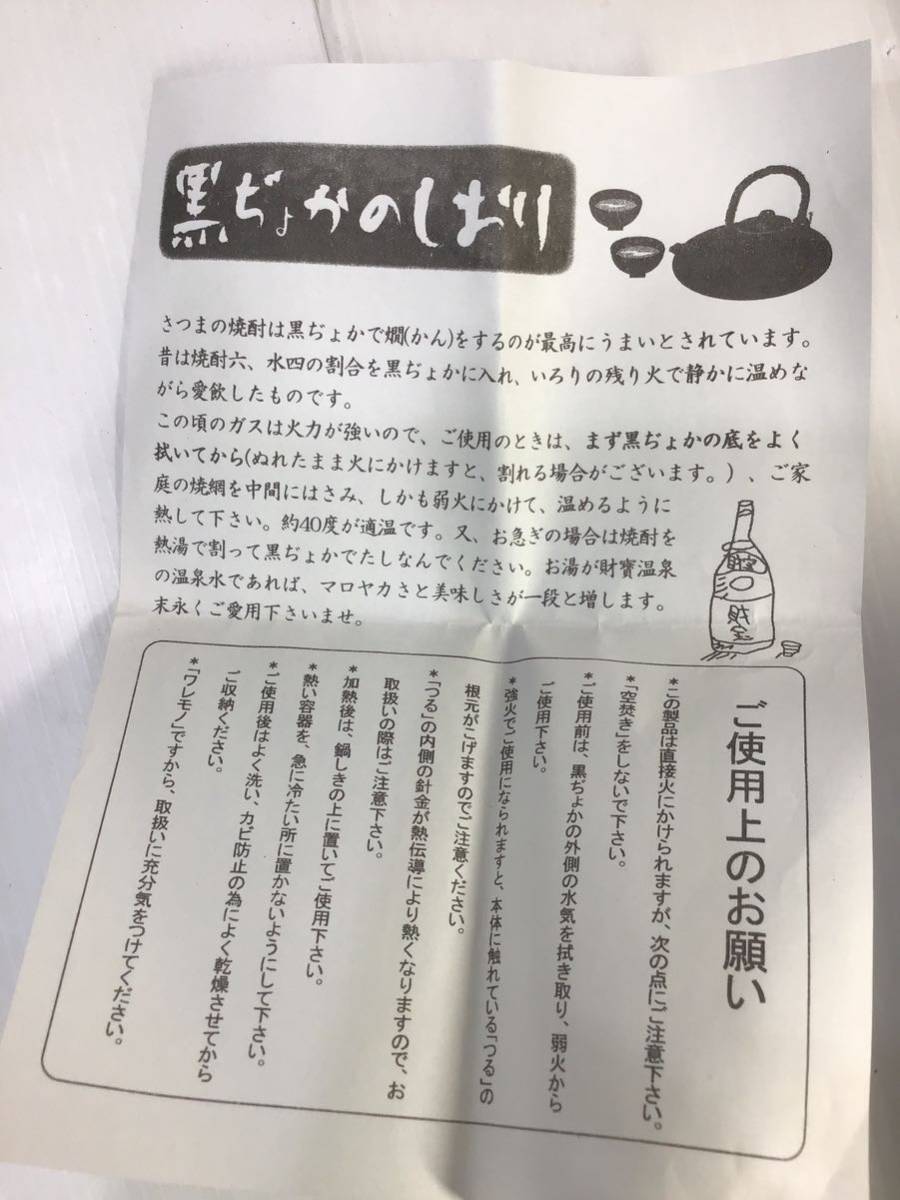 黒ぢょかのしおり
さつまの焼酎は黒ぢょかで燗(かん)をするのが最高にうまいとされています。
昔は焼酎六、水四の割合を黒ぢょかに入れ、いろりの残り火で静かに温めな
がら愛飲したものです。
この頃のガスは火力が強いので、ご使用のときは、まず黒ぢょかの底をよく
拭いてから(ぬれたまま火にかけますと、割れる場合がございます。)、ご家
庭の焼網を中間にはさみ、しかも弱火にかけて、温めるように
熱して下さい。約40度が適温です。又、お急ぎの場合は焼酎を
熱湯で割って黒ぢょかでたしなんでください。お湯が財寶温泉
の温泉水であれば、マロヤカさと美味しさが一段と増します。
末永くご愛用下さいませ。
ご使用上のお願い
*この製品は直接火にかけられますが、次の点にご注意下さい。
*「空焚き」をしないで下さい。
*ご使用前は、黒ぢょかの外側の水気を拭き取り、弱火から
ご使用下さい。
*強火でご使用になられますと、本体に触れている「つる」の
根元がこげますのでご注意ください。
*「つる」の内側の針金が熱伝導により熱くなりますので、お
取扱いの際はご注意下さい。
*加熱後は、鍋しきの上に置いてご使用下さい。
*熱い容器を、急に冷たい所に置かないようにして下さい。
*ご使用後はよく洗い、カビ防止の為によく乾燥させてから
ご収納ください。
*「ワレモノ」ですから、取扱いに充分気をつけてください。